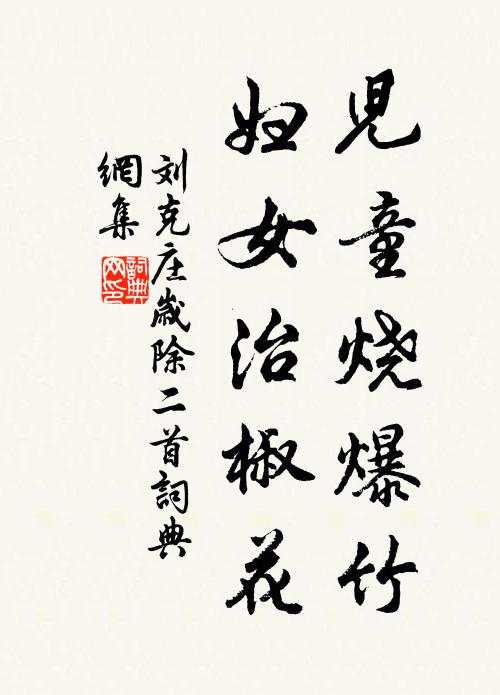 兒童烧爆竹
妇女治椒花
刘克庄歲除二首詞典
網集
詞典
网印